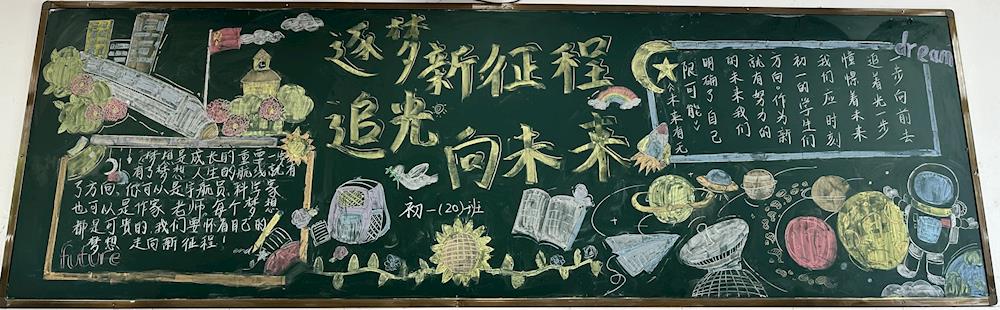 逐梦新征程
追光向未来
初一(20)班
梦想是成长的重要一
有了梦想人生的航线就有
了方向,你可以是宇航员,科学家
也可以是作家 老师,每个梦想
都是可贵的,我们要怀着自己的
梦想 走向新征程!
future
dream
一步向前去
追着光一步
憧憬着未来
我们应时刻
初一的学生们
方向。作为新
就有努力的
的未来我们
明确了自己
限可能~
未来有无